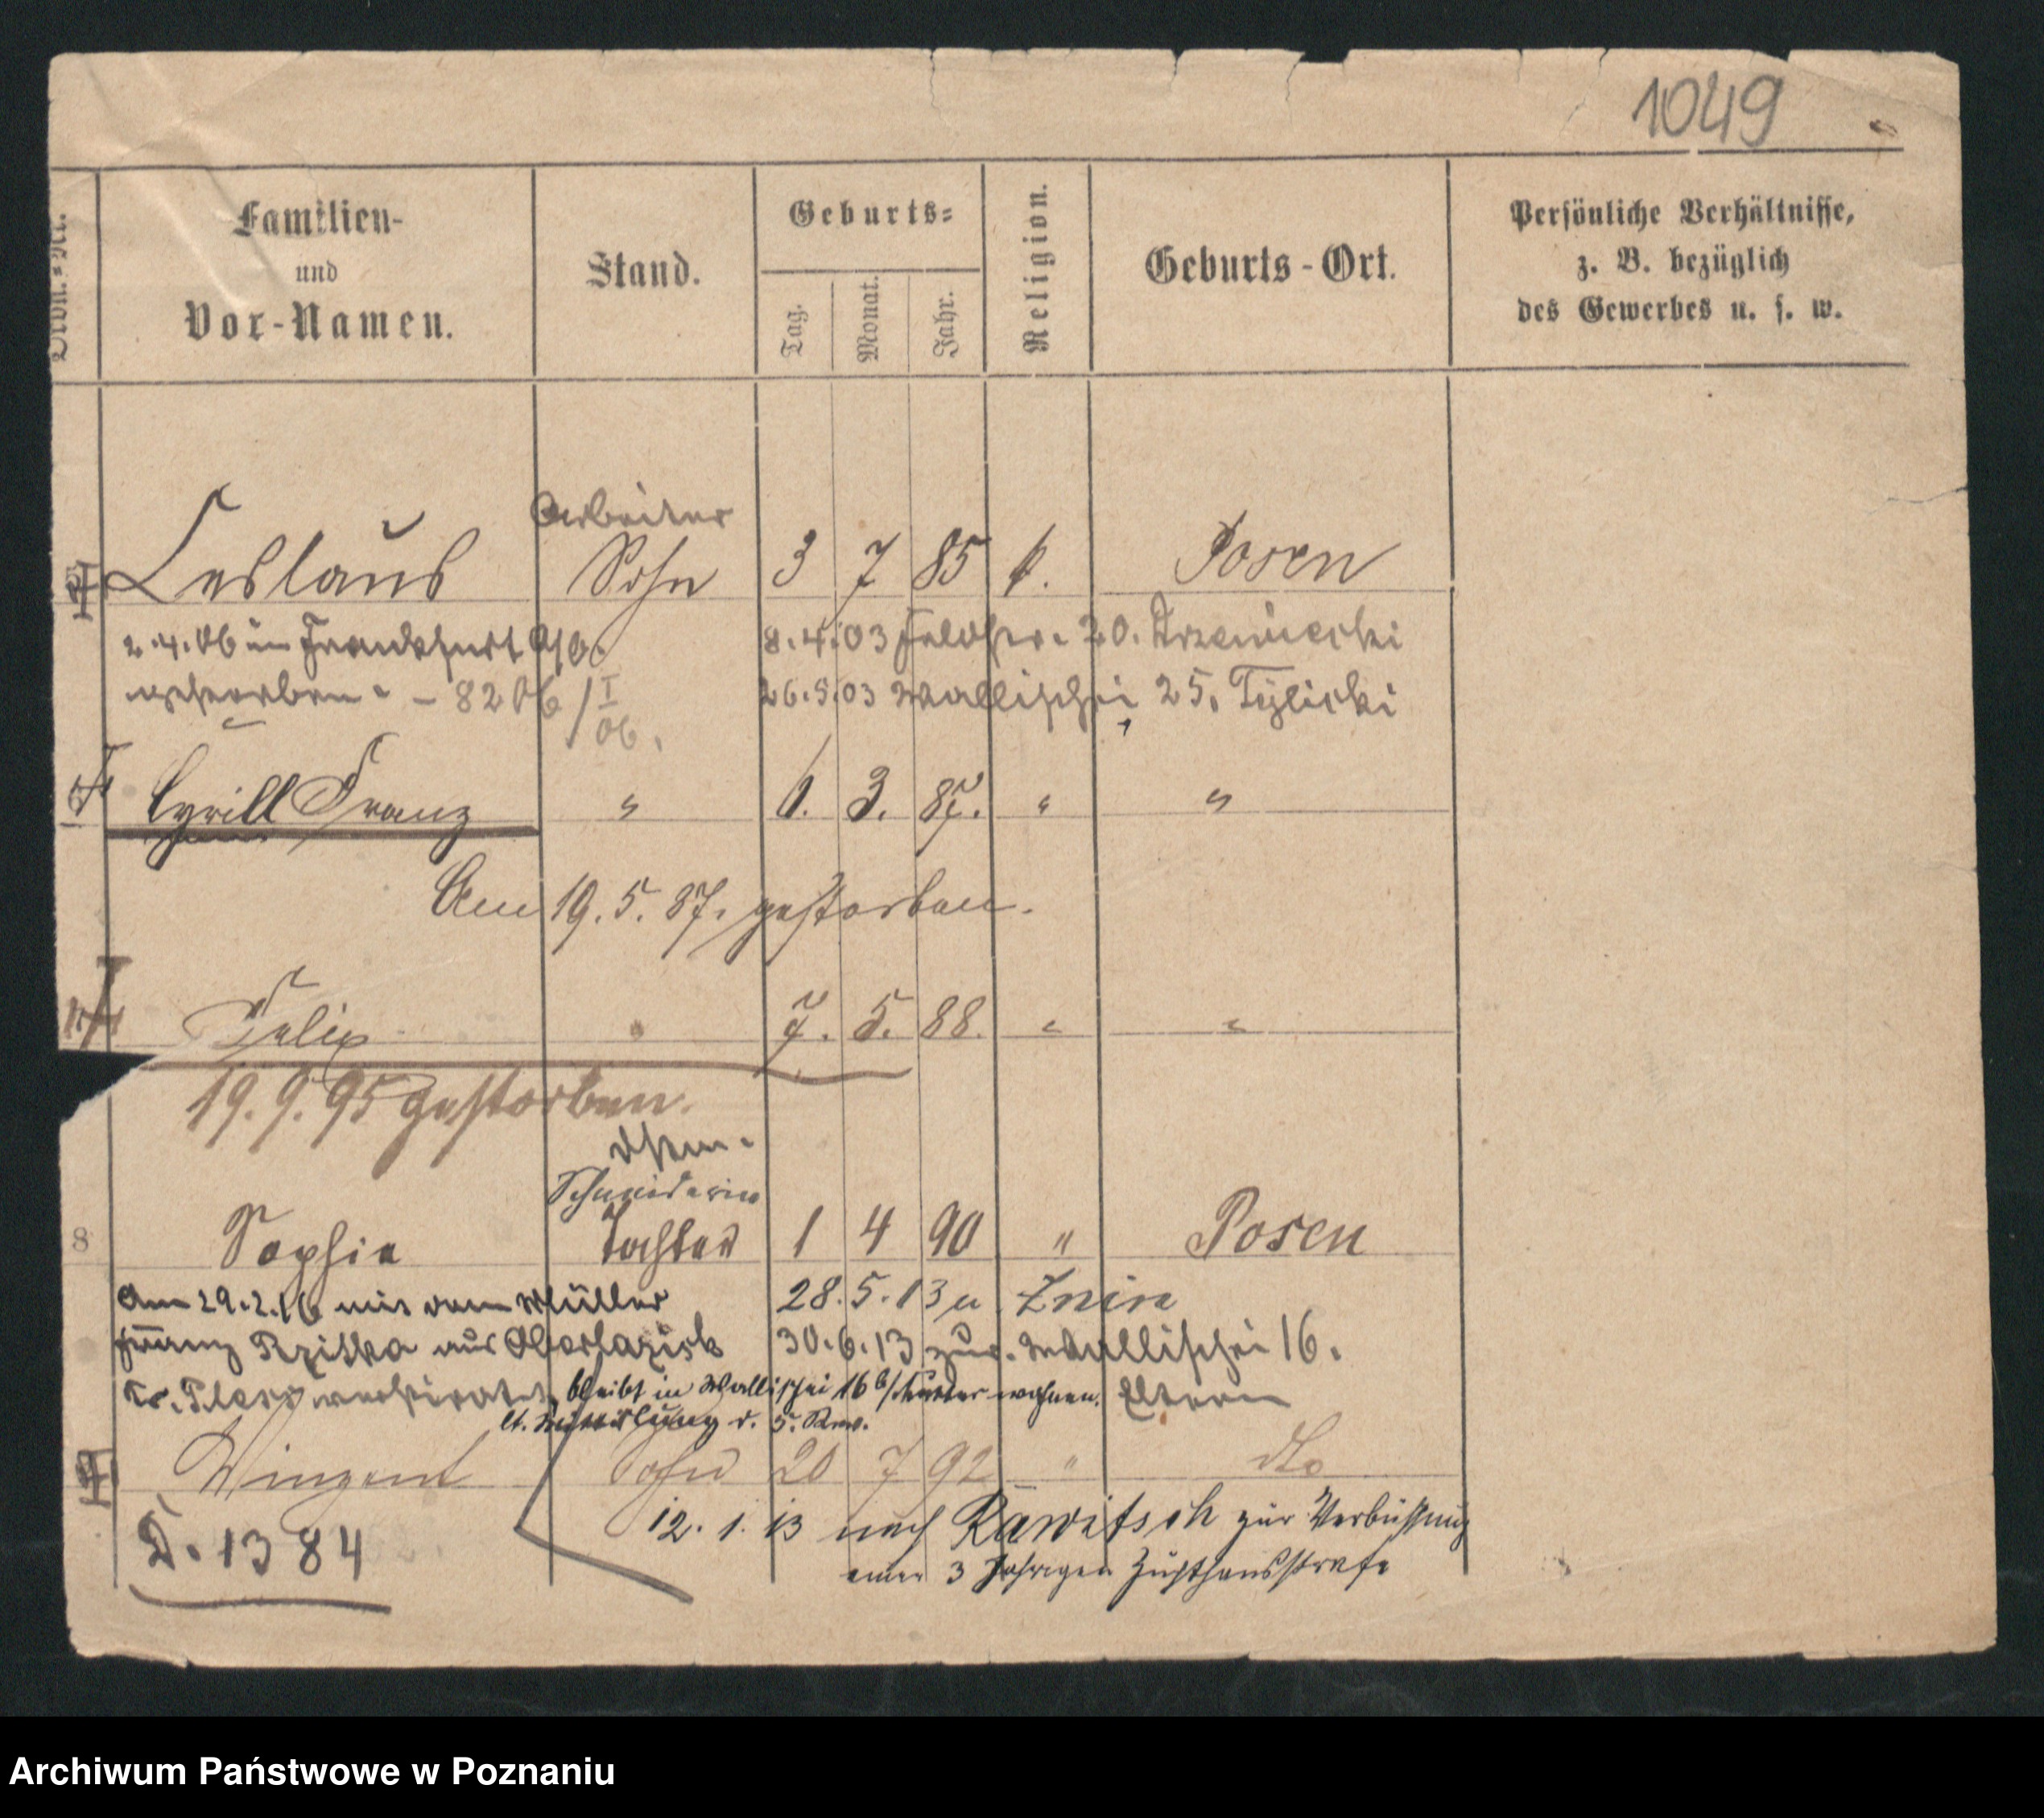 1049
Ordn.=Nr.
Familien-
und
Vor-Namen.
Stand.
Geburts=
Tag.
Monat.
Jahr.
Religion.
Geburts-Ort.
Persönliche Verhältnisse,
z. B. bezüglich
des Gewerbes u. s. w.
Arbeiter
Ceslaus Sohn 3 7 85 k. Posen
2.4.06 in Frankfurt a/O. 8.4.03 20.
gestorben. - 8206/I 06. 26.5.03 Wallischei 25. Tylicki
Cyrill Franz " 6. 3. 87. " "
Am 19.5.87. gestorben.
Felix " 7. 5. 88. " "
19.9.95 gestorben.
Schneiderin
8 Sophie Tochter 1 4 90 " Posen
Am 29.2.16 mit dem Müller 28.5.13 u Znin
Franz aus 30.6.13 zur. Wallischei 16.
Kr. Pless verheiratet, bleibt in Wallischei 16 b/ Mutter wohnen. Eltern
lt. Mitteilung d. 5. Rev.
Winzent Sohn 20 7 92 " dto
D. 1384
12.1.13 nach Rawitsch zur Verbüssung
einer 3 Jahrigen Zuchthausstrafe
Archiwum Państwowe w Poznaniu